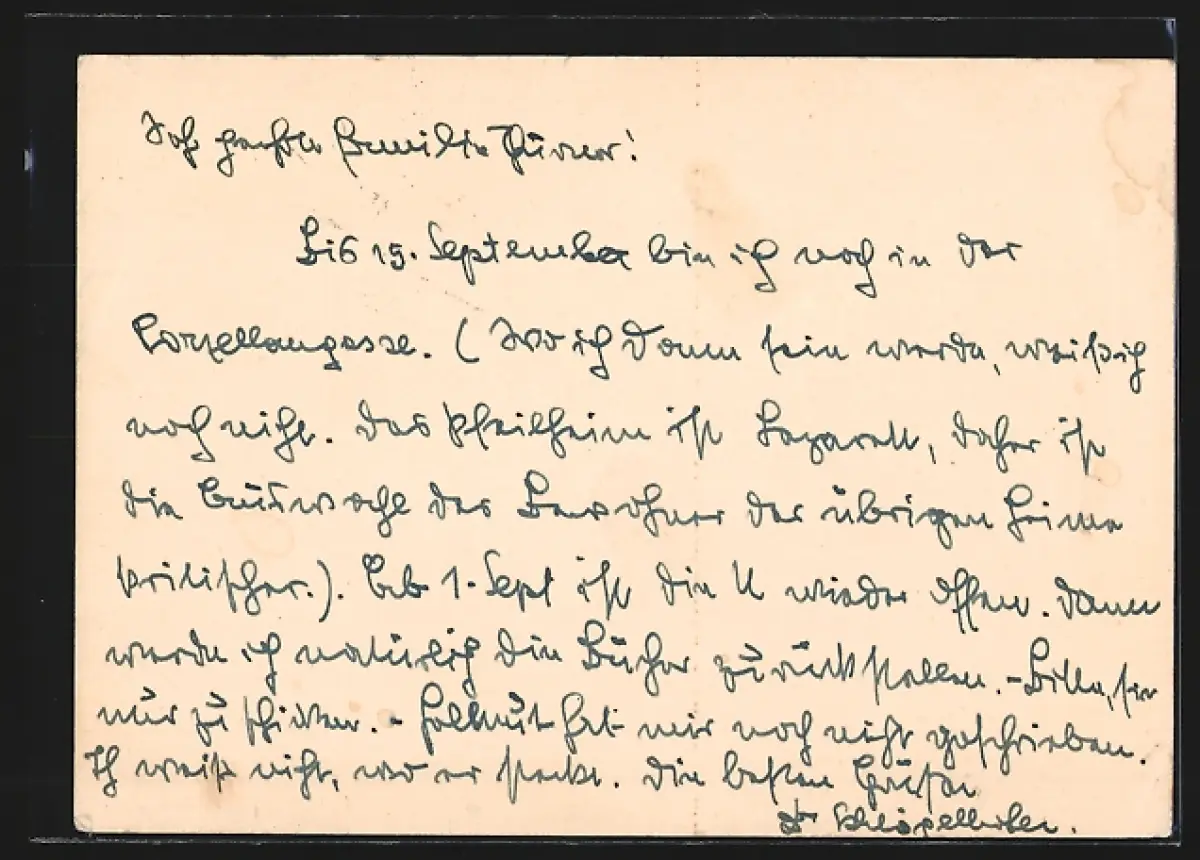 Sehr geehrte Familie Thürner!
Bis 15. September bin ich noch in der
Porzellangasse. (Wo ich dann sein werde, weiß ich
noch nicht. Das Pfeilheim ist Lazarett, daher ist
die Auswahl der Bewohner der übrigen Heime
kritischer.). Ab 1. Sept ist die U wieder offen. Dann
werde ich natürlich die Bücher zurückstellen. - Bitte, sie
nur zu schicken. - Helmut hat mir noch nicht geschrieben.
Ich weiß nicht, wo er steckt. Die besten Grüße